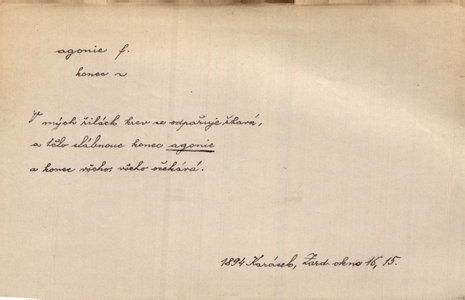 agonie f.
konec
V mých žilách krev se odpařuje žhavá,
a tělo slábnouc konec agonie
a konec všeho očekává.
1894 Karásek, Zazd. okna 16, 15.